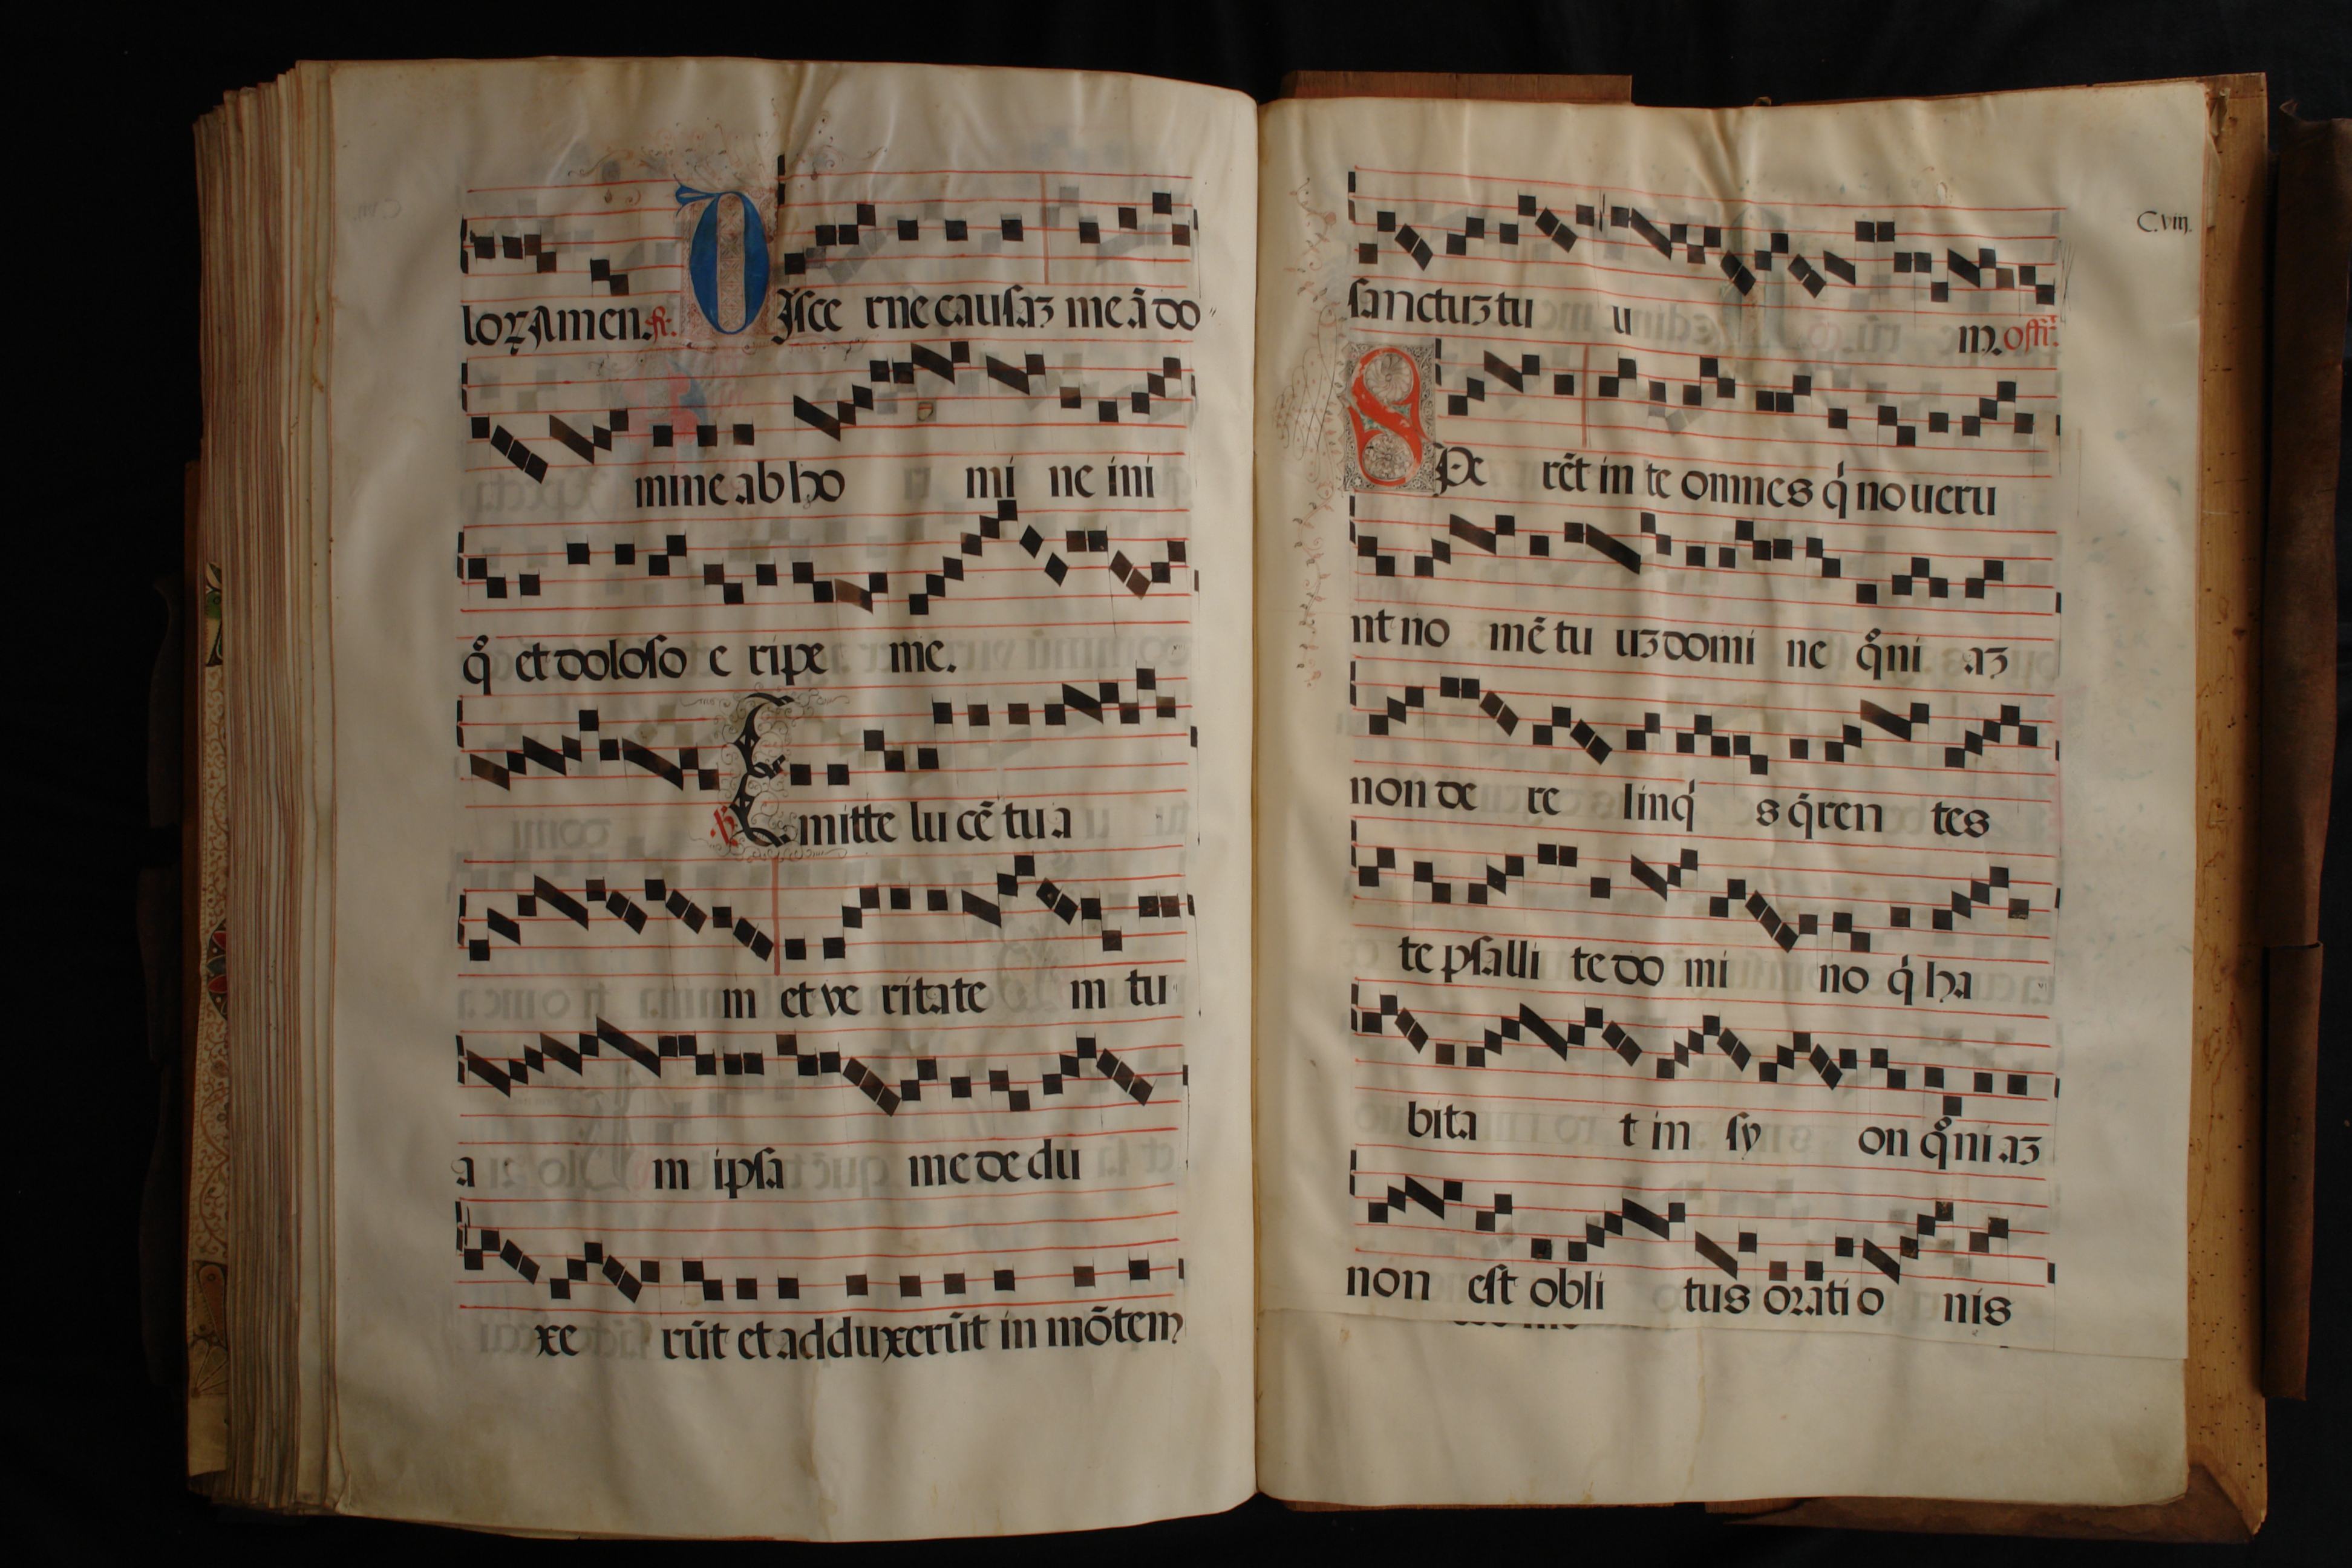 loꝝ Amen. ℟.
DIsce rne causaꝫ meā do
mine ab ho mi ne ini
qͦ et doloso e ripe me.
℣. Emitte lu cē tu a
m et ve ritate m tu
a m ipsa me de du
xe rūt et adduxerūt in mōtem
C.viij.
sanctuꝫ tu u m. offr̄.
SPe rēt in te omnes q́ noueru
nt no mē tu uꝫ domi ne qͦni aꝫ
non de re linq́ s q̄ren tes
te psalli te do mi no q́ ha
bita t in sy on qͦni aꝫ
non est obli tus orati o nis